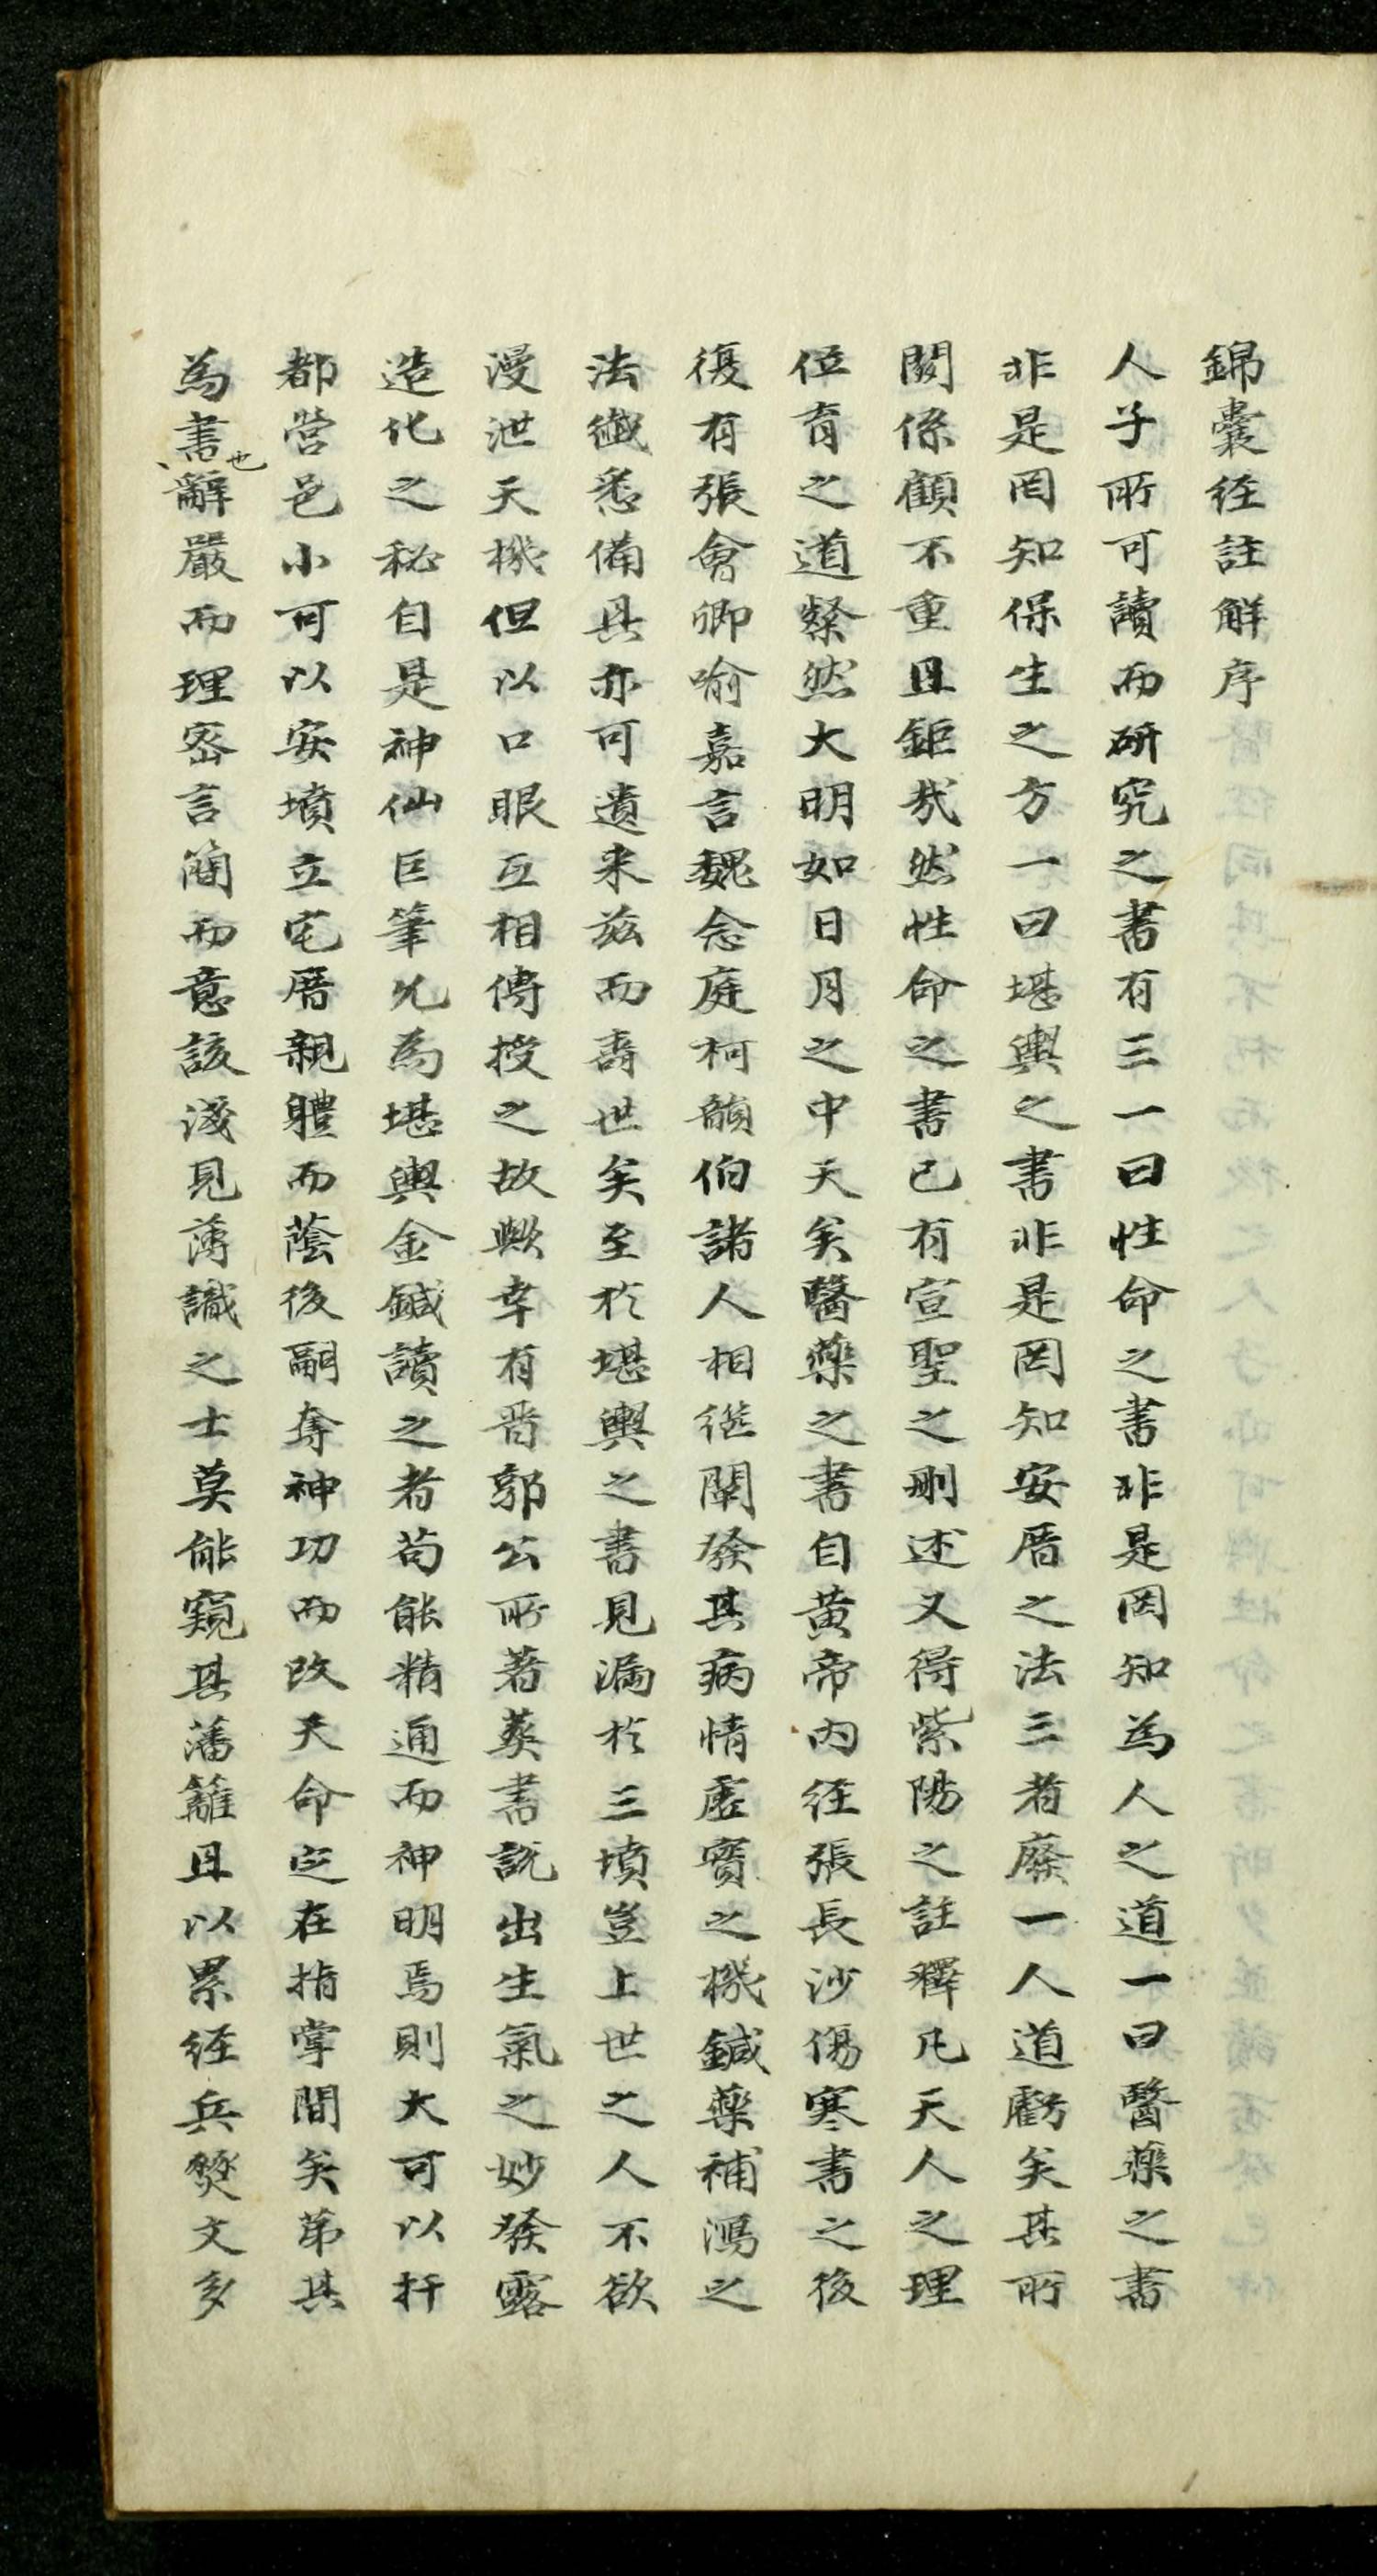 錦囊経註解序
人子所可讀而研究之書有三一曰性命之書非是罔知為人之道一曰醫藥之書
非是罔知保生之方一曰堪輿之書非是罔知安厝之法三者廢一人道虧矣其所
関係顧不重且鉅哉然性命之書已有宣聖之刪述又得紫陽之註釋凡天人之理
位育之道粲然大明如日月之中天矣醫藥之書自黃帝內経張長沙傷寒書之後
復有張會卿喻嘉言魏念庭柯韻伯諸人相継闡發其病情虛實之機鍼藥補瀉之
法懺悉備具亦可遺来茲而壽世矣至於堪輿之書見漏於三墳豈上世之人不欲
漫泄天機但以口眼互相傳授之故歟幸有晉郭公所著葬書說出生氣之妙發露
造化之秘自是神仙巨筆允為堪輿金鍼讀之者苟能精通而神明焉則大可以扞
都营邑小可以安墳立宅厝親體而蔭後嗣奪神功而改天命定在指掌間矣苐其
為書也辭嚴而理宻言簡而意該淺見薄識之士莫能窺其藩籬且以累経兵燹文多